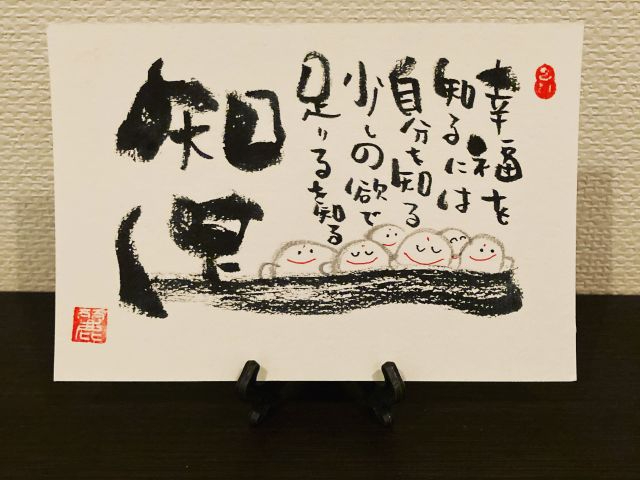 幸福を
知るには
自分を知る
少しの欲で
足りるを知る
知足
麗